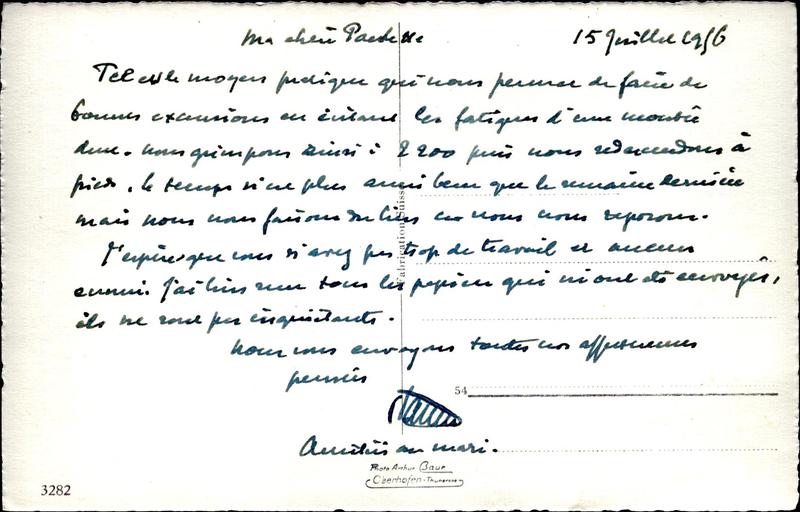 Ma chère Paulette 15 Juillet 1956
Tel est le moyen pratique qui nous permet de faire de
bonnes excursions en évitant les fatigues d'une montée
dure. nous grimpons ainsi à 2200 puis nous redescendons à
pieds. le temps n'est plus aussi beau que la semaine dernière
mais nous nous faisons du bien et nous nous reposons.
J'espère que vous n'avez pas trop de travail et aucun
ennui. J'ai bien reçu tous les papiers qui m'ont été envoyés,
ils ne sont pas inquiétants.
Nous vous envoyons toutes nos affectueuses
pensées
Amitiés au mari.
Fabrication Suisse
54
Photo Arthur Baur
Oberhofen-Thunersee
3282